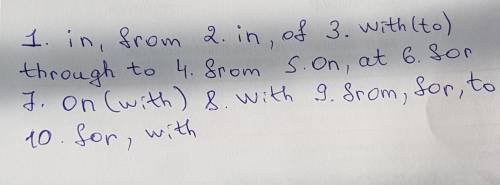 1. in, from 2. in, of 3. with(to)
through to 4. from 5. on, at 6. for
7. on (with) 8. with 9. from, for, to
10. for, with